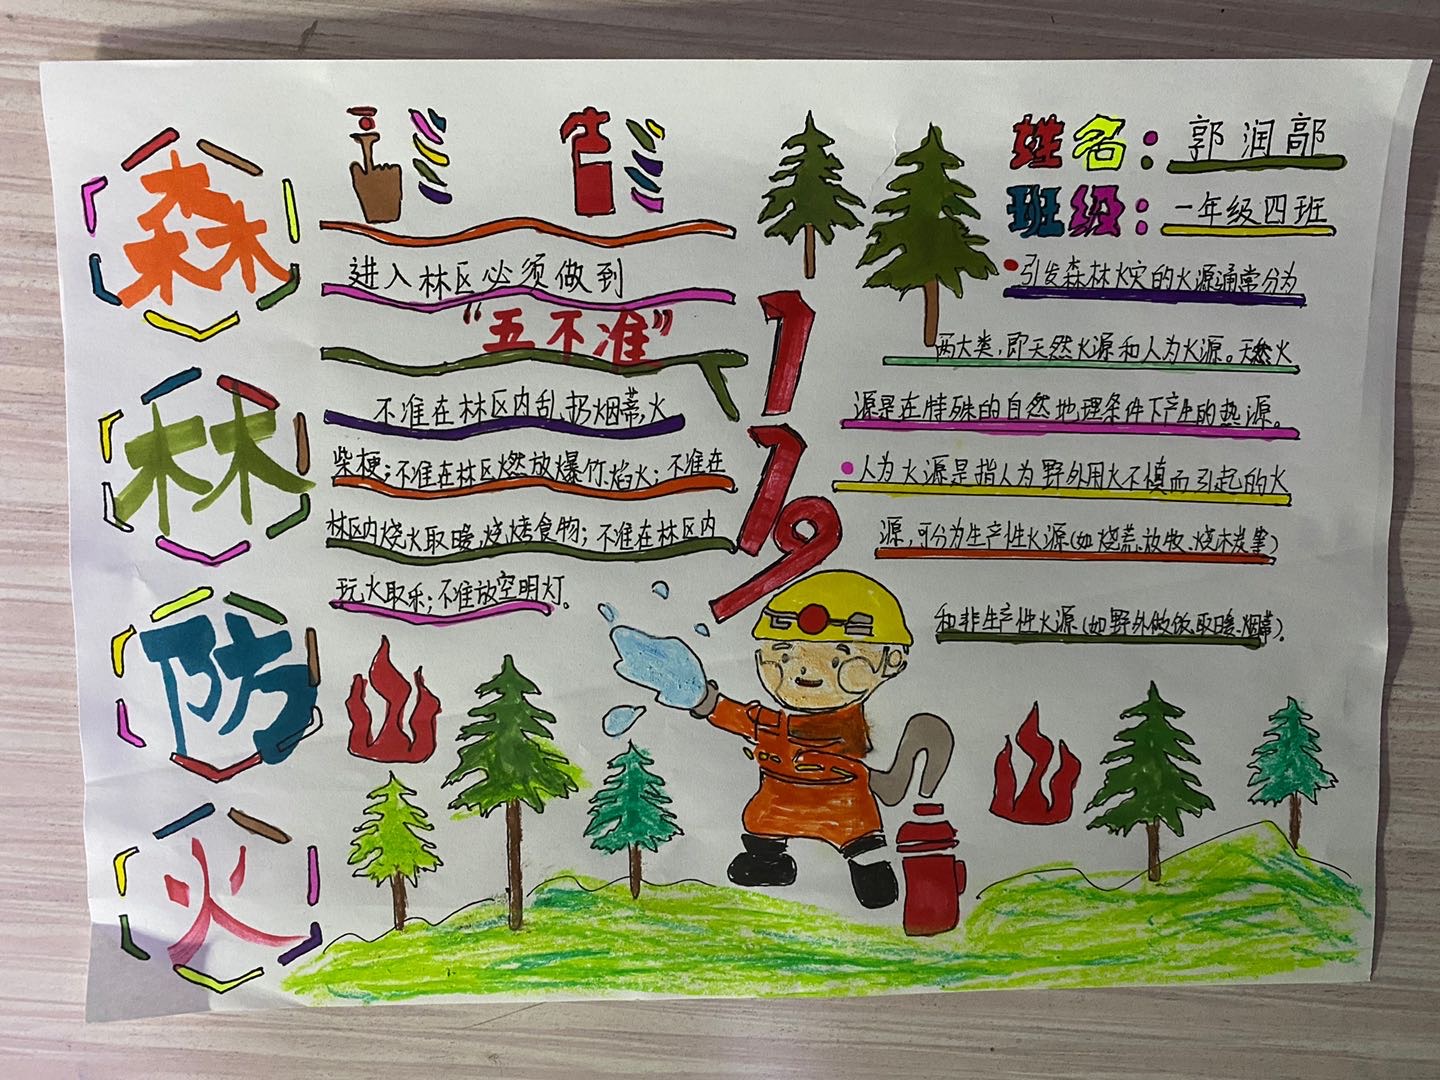 森
林
防
火
进入林区必须做到
“五不准”
不准在林区内乱扔烟蒂,火
柴梗;不准在林区燃放爆竹、焰火;不准在
林区内烧火取暖,烧烤食物;不准在林区内
玩火取乐;不准放空明灯。
119
姓名:郭润部
班级:一年级四班
引发森林火灾的火源通常分为
两大类,即天然火源和人为火源。天然火
源是在特殊的自然地理条件下产生的热源。
人为火源是指人为野外用火不慎而引起的火
源,可分为生产性火源(如烧荒、放牧、烧木炭等)
和非生产性火源(如野外做饭、取暖、烟蒂)。